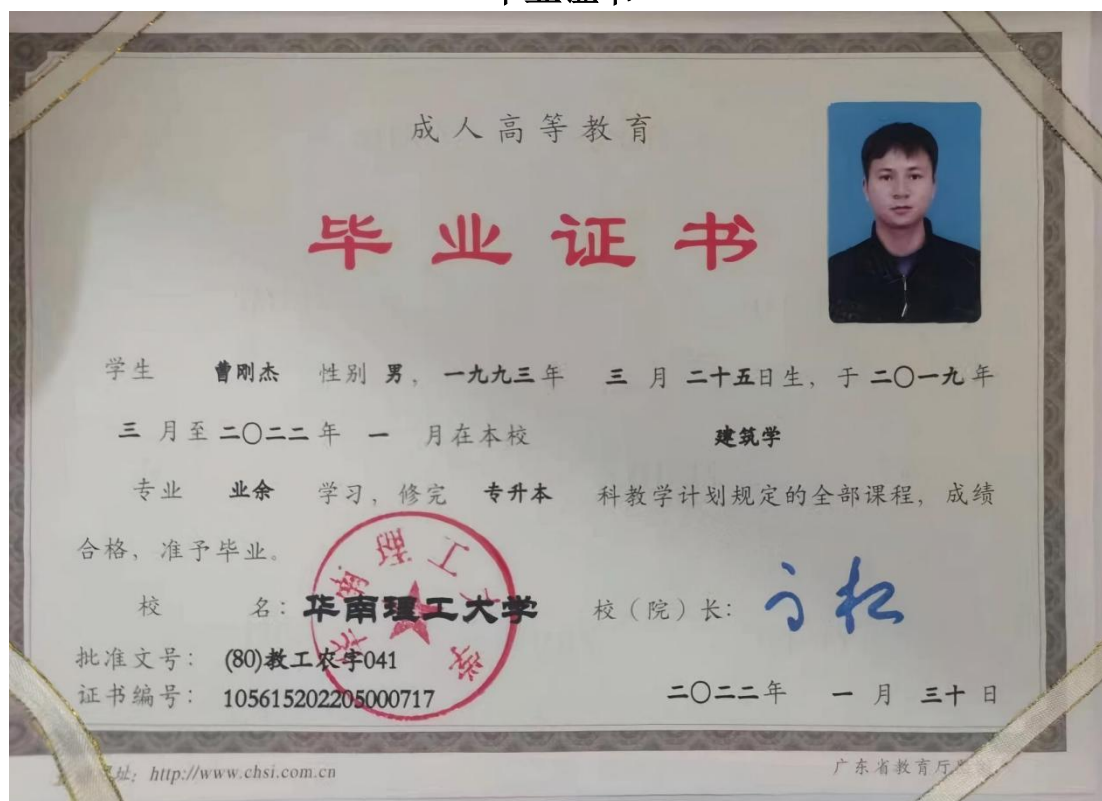 成人高等教育
毕业证书
学生 曹刚杰 性别 男，一九九三年 三 月 二十五日生，于 二〇一九年
三 月至 二〇二二 年 一 月在本校 建筑学
专业 业余 学习，修完 专升本 科教学计划规定的全部课程，成绩
合格，准予毕业。
华南理工大学
校 名：华南理工大学 校（院）长：
批准文号：(80)教工农字041
证书编号：105615202205000717 二〇二二年 一 月 三十 日
址：http://www.chsi.com.cn 广东省教育厅